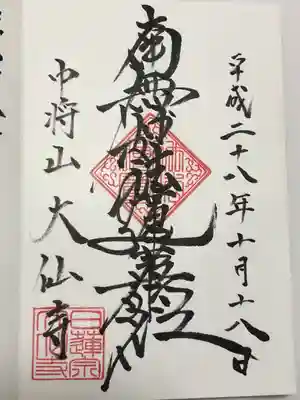 平成二十八年十月十八日
南無妙法蓮華経
中将山大仙寺
日蓮宗